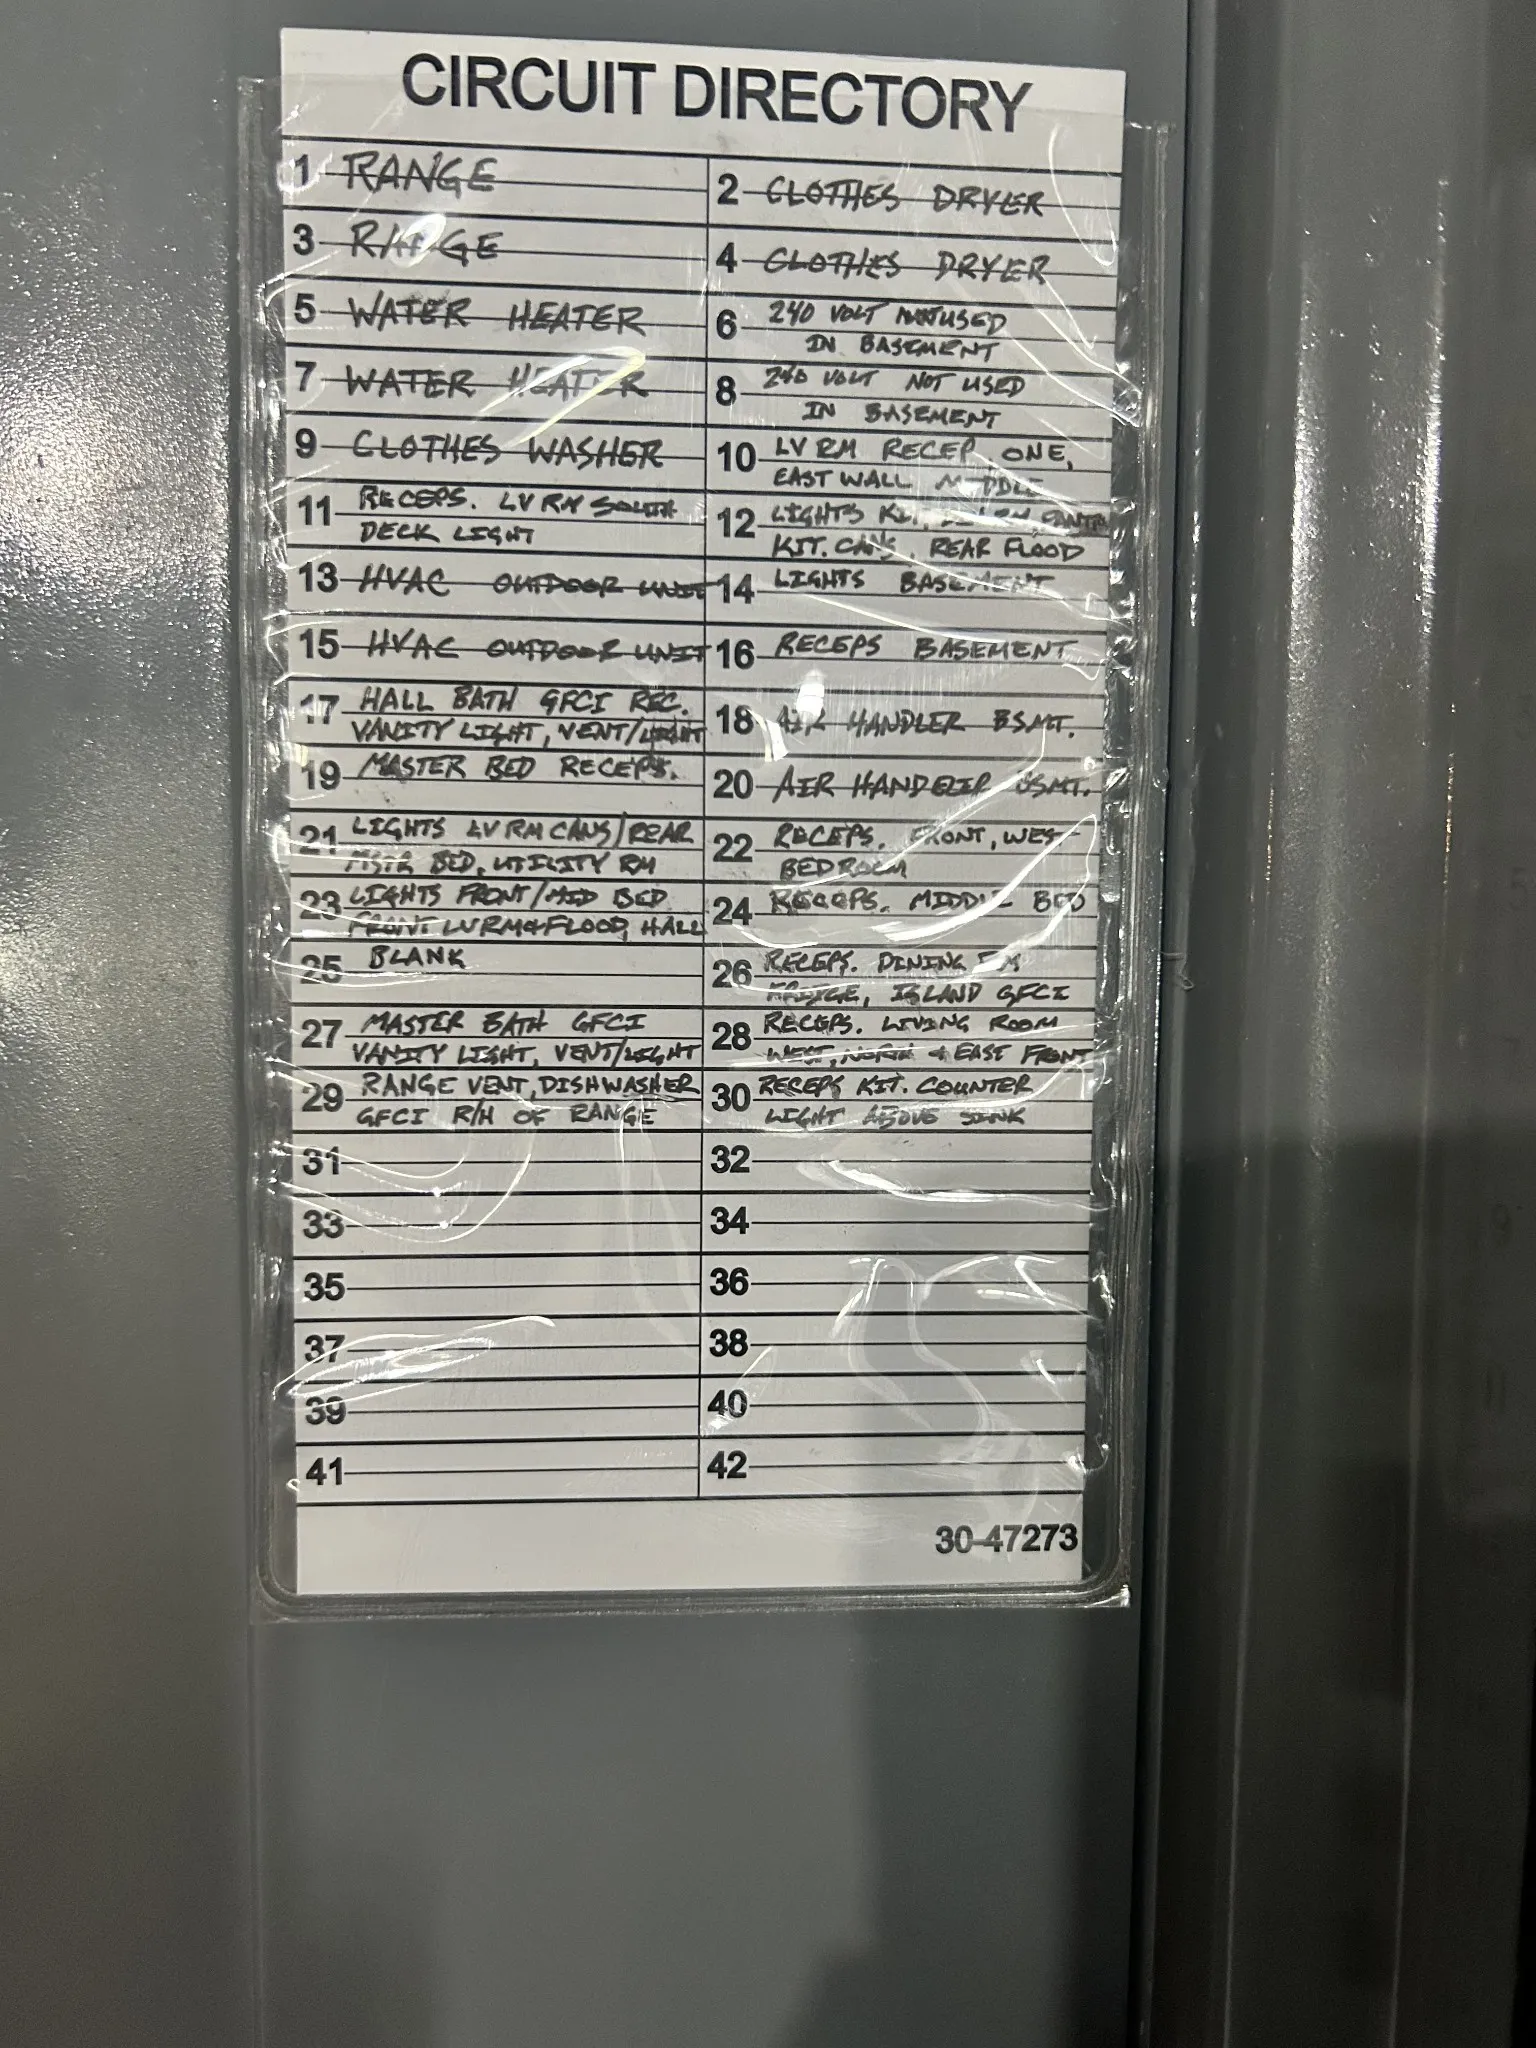 CIRCUIT DIRECTORY
1 RANGE
2 CLOTHES DRYER
3 RANGE
4 CLOTHES DRYER
5 WATER HEATER
6 240 VOLT NOT USED
IN BASEMENT
7 WATER HEATER
8 240 VOLT NOT USED
IN BASEMENT
9 CLOTHES WASHER
10 LV RM RECEP. ONE,
EAST WALL MIDDLE
11 RECEPS. LV RM SOUTH
DECK LIGHT
12 LIGHTS KIT,
KIT. CANS, REAR FLOOD
13 HVAC OUTDOOR UNIT
14 LIGHTS BASEMENT
15 HVAC OUTDOOR UNIT
16 RECEPS BASEMENT
17 HALL BATH GFCI REC.
VANITY LIGHT, VENT/LIGHT
18 AIR HANDLER BSMT.
19 MASTER BED RECEPS.
20 AIR HANDELER BSMT.
21 LIGHTS LV RM CANS/REAR
MSTR BED, UTILITY RM
22 RECEPS. FRONT, WEST
BEDROOM
23 LIGHTS FRONT/MID BED
FRONT LV RM & FLOOD, HALL
24 RECEPS. MIDDLE BED
25 BLANK
26 RECEPS. DINING RM
FRIDGE, ISLAND GFCI
27 MASTER BATH GFCI
VANITY LIGHT, VENT/LIGHT
28 RECEPS. LIVING ROOM
WEST, NORTH & EAST FRONT
29 RANGE VENT, DISHWASHER
GFCI R/H OF RANGE
30 RECEPS KIT. COUNTER
LIGHT ABOVE SINK
31
32
33
34
35
36
37
38
39
40
41
42
30-47273